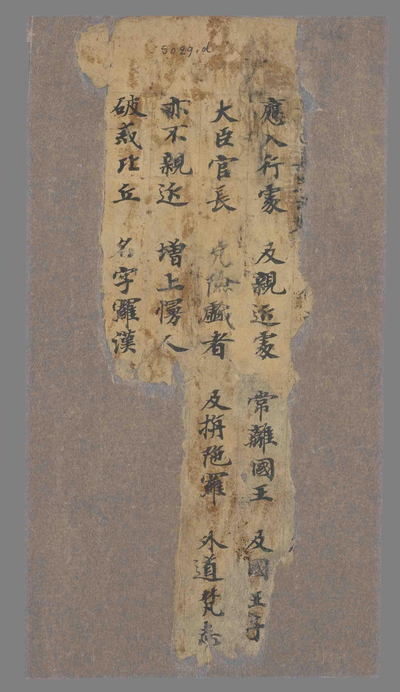 5029.d
應入行處 及親近處 常離國王 及國王子
大臣官長 兇險戲者 及栴陁羅 外道梵志
亦不親近 增上慢人
破戒比丘 名字羅漢